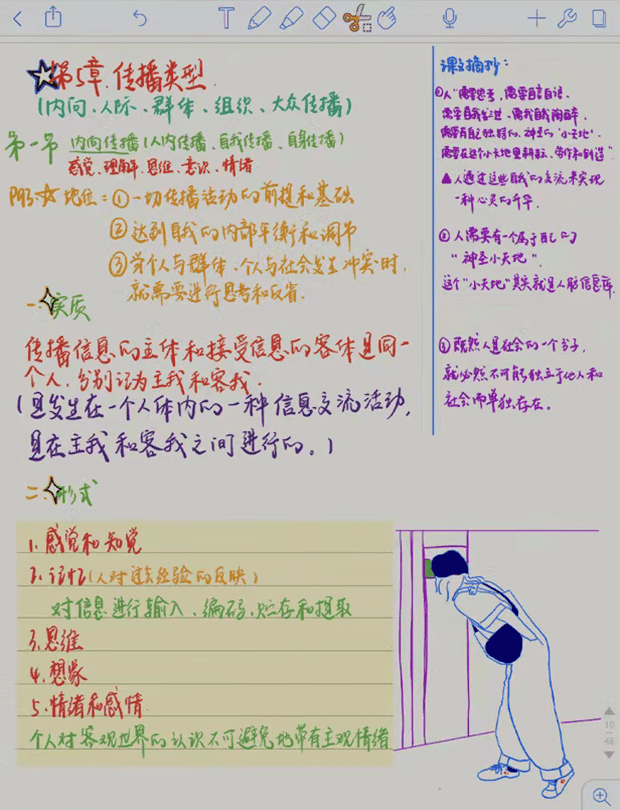 第5章.传播类型
(内向、人际、群体、组织、大众传播)
第一节 内向传播(人内传播、自我传播、自身传播)
感觉、理解、思维、意识、情绪
P83.☆地位:①一切传播活动的前提和基础
②达到自我的内部平衡和调节
③当个人与群体、个人与社会发生冲突时,
就需要进行思考和反省.
一.实质
传播信息的主体和接受信息的客体是同一
个人.分别记为主我和客我.
(是发生在一个人体内的一种信息交流活动,
是在主我和客我之间进行的。)
二.形式
1.感觉和知觉
2.记忆(人对过去经验的反映)
对信息进行输入、编码、贮存和提取
3.思维
4.想象
5.情绪和感情
个人对客观世界的认识不可避免地带有主观情绪
课文摘抄:
①人"需要思考,需要自言自语,
需要自我发泄、需我自我陶醉,
需要有自己独特的、神圣的"小天地".
需要在这个小天地里耕耘、劳作和创造"
▲人通过这些自我的交流来实现
一种心灵的升华.
②人需要有一个属于自己的
"神圣小天地".
这个"小天地"其实就是人脑信息库.
③既然人是社会的一个分子,
就必然不可能独立于他人和
社会而单独存在。
10
48